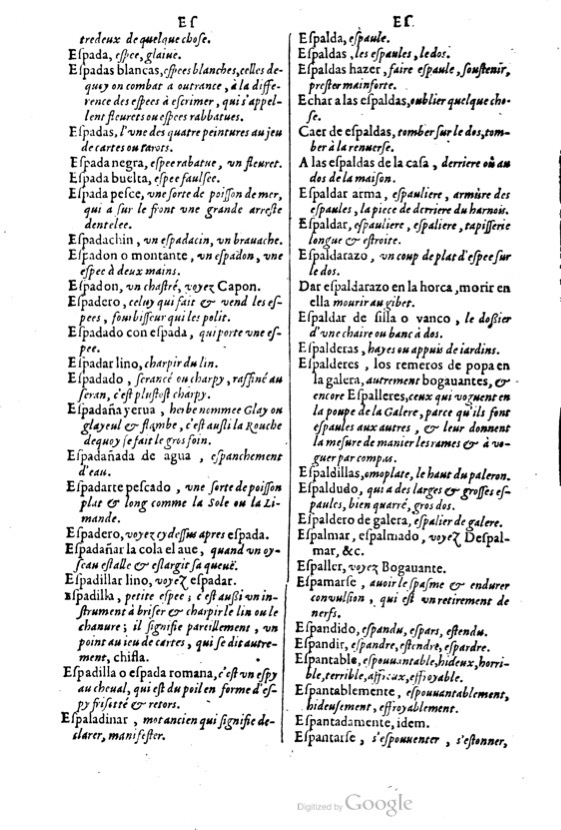 Eſ
tredeux de quelque choſe.
Eſpada, eſpee, glaiue.
Eſpadas blancas, eſpees blanches, celles de-
quoy on combat a outrance, à la diffe-
rence des eſpees à eſcrimer, qui s'appel-
lent fleurets ou eſpees rabbatues.
Eſpadas, l'vne des quatre peintures au jeu
de cartes ou tarots.
Eſpada negra, eſpee rabatue, vn fleuret.
Eſpada buelta, eſpee fauſſee.
Eſpada pesce, vne ſorte de poiſſon de mer,
qui a ſur le front vne grande arreſte
dentelee.
Eſpadachin, vn eſpadacin, vn brauache.
Eſpadon o montante, vn eſpadon, vne
eſpee à deux mains.
Eſpadon, vn chaſtré, voyez Capon.
Eſpadero, celuy qui fait & vend les eſ-
pees, fourbiſſeur qui les polit.
Eſpadado con eſpada, qui porte vne eſ-
pee.
Eſpadar lino, charpir du lin.
Eſpadado, ſerancé ou charpy, raffiné au
ſeran, c'eſt pluſtoſt charpy.
Eſpadaña yerua, herbe nommee Glay ou
glayeul & flambe, c'eſt auſſi la Rouche
dequoy ſe fait le gros foin.
Eſpadañada de agua, eſpanchement
d'eau.
Eſpadarte peſcado, vne ſorte de poiſſon
plat & long comme la Sole ou la Li-
mande.
Eſpadero, voyez cy deſſus apres eſpada.
Eſpadañar la cola el aue, quand vn oy-
ſeau eſtalle & eſlargit ſa queuë.
Eſpadillar lino, voyez eſpadar.
Eſpadilla, petite eſpee; c'eſt auſſi vn in-
ſtrument à briſer & charpir le lin ou le
chanure; il ſignifie pareillement, vn
point au jeu de cartes, qui ſe dit autre-
ment, chifla.
Eſpadilla o eſpada romana, c'eſt vn eſpy
au cheual, qui eſt du poil en forme d'eſ-
py friſotté & retors.
Eſpaladinar, mot ancien qui ſignifie de-
clarer, manifeſter.
Eſ.
Eſpalda, eſpaule.
Eſpaldas, les eſpaules, le dos.
Eſpaldas hazer, faire eſpaule, ſouſtenir,
preſter main forte.
Echar a las eſpaldas, oublier quelque cho-
ſe.
Caer de eſpaldas, tomber ſur le dos, tom-
ber à la renuerſe.
A las eſpaldas de la caſa, derriere où au
dos de la maiſon.
Eſpaldar arma, eſpauliere, armùre des
eſpaules, la piece de derriere du harnois.
Eſpaldar, eſpauliere, eſpaliere, tapiſſerie
longue & eſtroite.
Eſpaldarazo, vn coup de plat d'eſpee ſur
le dos.
Dar eſpaldarazo en la horca, morir en
ella mourir au gibet.
Eſpaldar de ſilla o vanco, le doſſier
d'vne chaire ou banc à dos.
Eſpalderas, hayes ou appuis de iardins.
Eſpalderes, los remeros de popa en
la galera, autrement bogauantes, &
encore Eſpalleres, ceux qui voguent en
la poupe de la Galere, parce qu'ils font
eſpaules aux autres, & leur donnent
la meſure de manier les rames & à vo-
guer par compas.
Eſpaldillas, omoplate, le haut du paleron.
Eſpaldudo, qui a des larges & groſſes eſ-
paules, bien quarré, gros dos.
Eſpaldero de galera, eſpalier de galere.
Eſpalmar, eſpalmado, voyez Deſpal-
mar, &c.
Eſpaller, voyez Bogauante.
Eſpamarſe, auoir le ſpaſme & endurer
convulſion, qui eſt vn retirement de
nerfs.
Eſpandido, eſpandu, eſpars, eſtendu.
Eſpandir, eſpandre, eſtendre, eſpardre.
Eſpantable, eſpouuantable, hideux, horri-
ble, terrible, affreux, effroyable.
Eſpantablemente, eſpouuantablement,
hideuſement, effroyablement.
Eſpantadamente, idem.
Eſpantarſe, s'eſpouuenter, s'eſtonner,
Digitized by Google